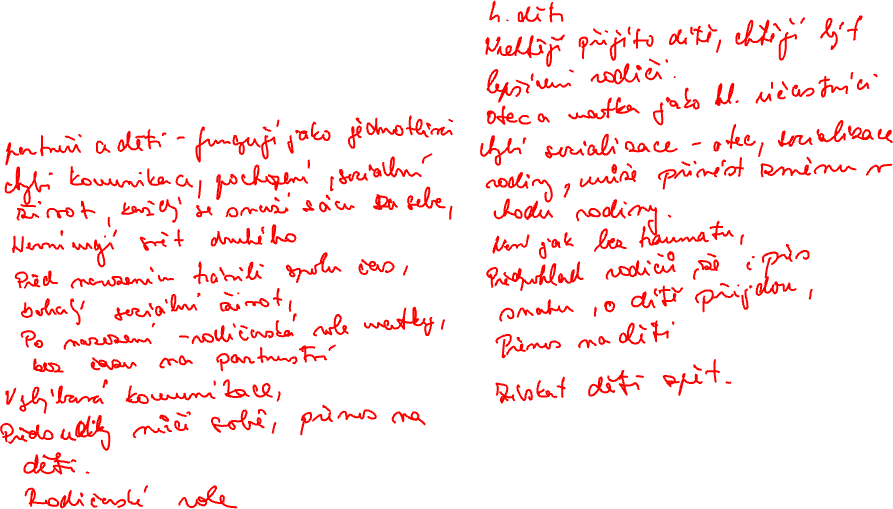 partneři a děti - fungují jako jednotlivci
chybí komunikace, pochopení, sociální
život, každý se snaží sám za sebe,
Nevnímají svět druhého
Před narozením trávili spolu čas,
bohatý sociální život,
Po narození - rodičovská role matky,
bez času na partnerství
Vyhýbavá komunikace,
vůči sobě, přenos na
děti.
Rodičovské role
děti
Nechtějí přijít o dítě, chtějí být
lepšími rodiči.
Otec a matka jako hl. účastníci
chybí socializace - otec, socializace
rodiny, může přinést změnu v
chodu rodiny.
Není jak bez traumatu,
Předpoklad rodičů, že i přes
snahu, o dítě přijdou,
Přenos na děti
Získat děti zpět.